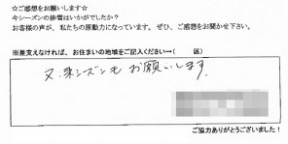 ☆ご感想をお願いします☆
今シーズンの除雪はいかがでしたか？
お客様の声が、私たちの原動力になっています。ぜひ、ご感想をお聞かせ下さい。
※差支えなければ、お住まいの地域をご記入ください→（　　　区）
又、来シーズンも お願いします。
ご協力ありがとうございました！